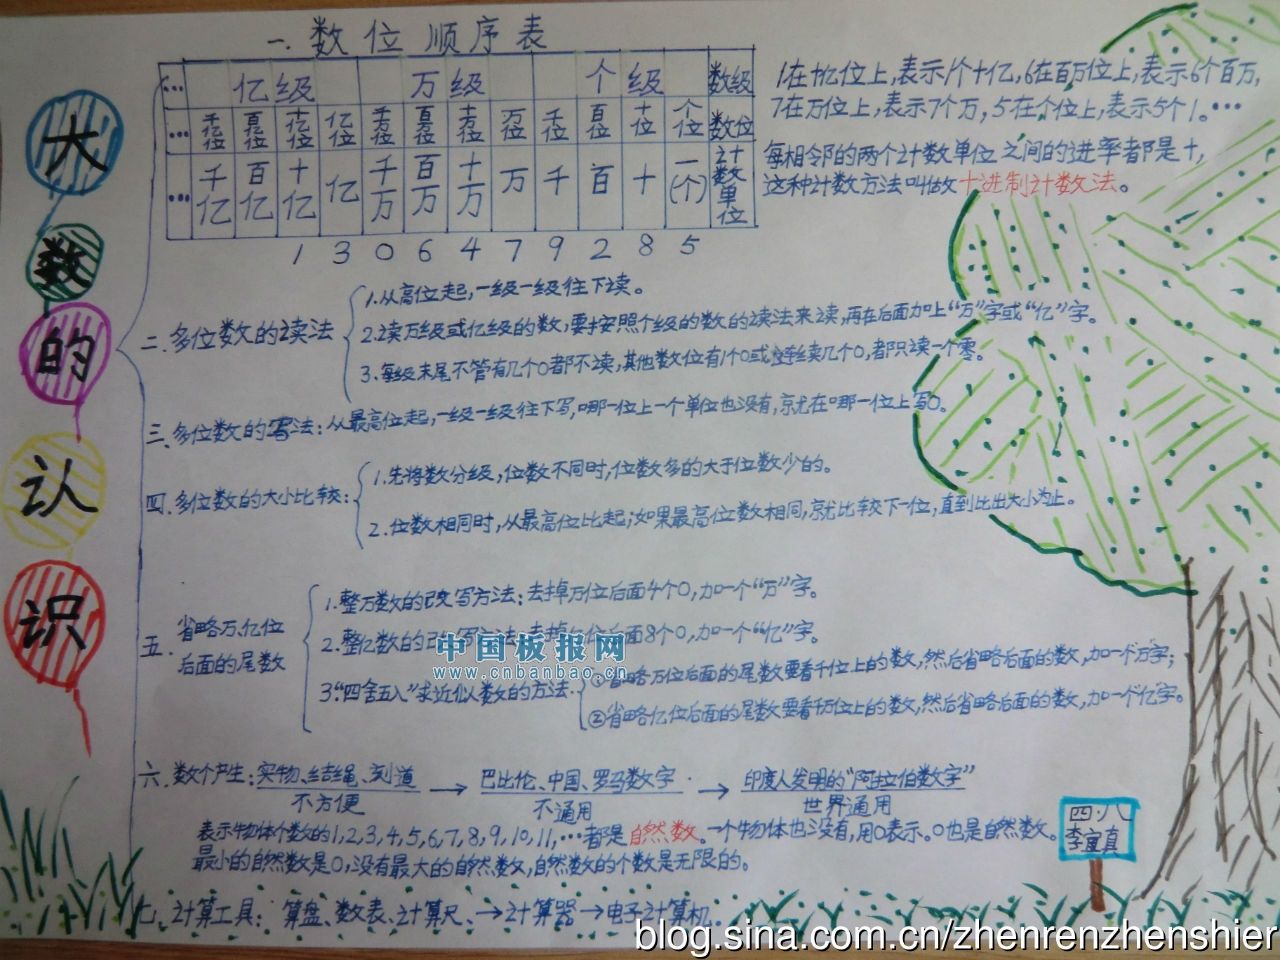 大数的认识
一.数位顺序表
… 亿级 万级 个级 数级
… 千亿位 百亿位 十亿位 亿位 千万位 百万位 十万位 万位 千位 百位 十位 个位 数位
… 千亿 百亿 十亿 亿 千万 百万 十万 万 千 百 十 一(个) 计数单位
1 3 0 6 4 7 9 2 8 5
1在十亿位上,表示1个十亿,6在百万位上,表示6个百万,
7在万位上,表示7个万,5在个位上,表示5个1。…
每相邻的两个计数单位之间的进率都是十,
这种计数方法叫做十进制计数法。
二.多位数的读法
1.从高位起,一级一级往下读。
2.读万级或亿级的数,要按照个级的数的读法来读,再在后面加上“万”字或“亿”字。
3.每级末尾不管有几个0都不读,其他数位有1个0或连续几个0,都只读一个零。
三、多位数的写法:从最高位起,一级一级往下写,哪一位上一个单位也没有,就在哪一位上写0。
四.多位数的大小比较:
1.先将数分级,位数不同时,位数多的大于位数少的。
2.位数相同时,从最高位比起;如果最高位数相同,就比较下一位,直到比出大小为止。
五.省略万、亿位
后面的尾数
1.整万数的改写方法:去掉万位后面4个0,加一个“万”字。
2.整亿数的改写方法:去掉亿位后面8个0,加一个“亿”字。
3.“四舍五入”求近似数的方法
①省略万位后面的尾数要看千位上的数,然后省略后面的数,加一个“万”字;
②省略亿位后面的尾数要看千万位上的数,然后省略后面的数,加一个“亿”字。
中国板报网
www.cnbanbao.cn
六.数个产生:实物、结绳、刻道 → 巴比伦、中国、罗马数字 → 印度人发明的“阿拉伯数字”
不方便 不通用 世界通用
表示物体个数的1,2,3,4,5,6,7,8,9,10,11,…都是自然数。一个物体也没有,用0表示。0也是自然数。
最小的自然数是0,没有最大的自然数,自然数的个数是无限的。
四.八
李宜真
七、计算工具:算盘、数表、计算尺、→计算器→电子计算机。
blog.sina.com.cn/zhenrenzhenshier